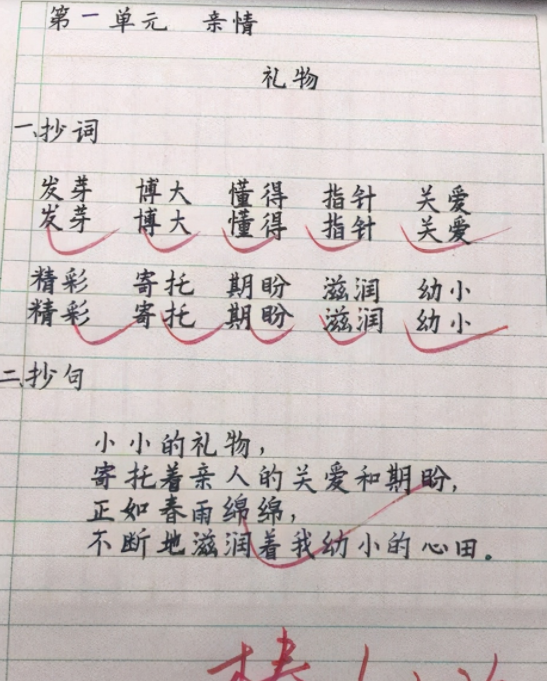 第一单元 亲情
礼物
一、抄词
发芽 博大 懂得 指针 关爱
发芽 博大 懂得 指针 关爱
精彩 寄托 期盼 滋润 幼小
精彩 寄托 期盼 滋润 幼小
二、抄句
小小的礼物，
寄托着亲人的关爱和期盼，
正如春雨绵绵，
不断地滋润着我幼小的心田。